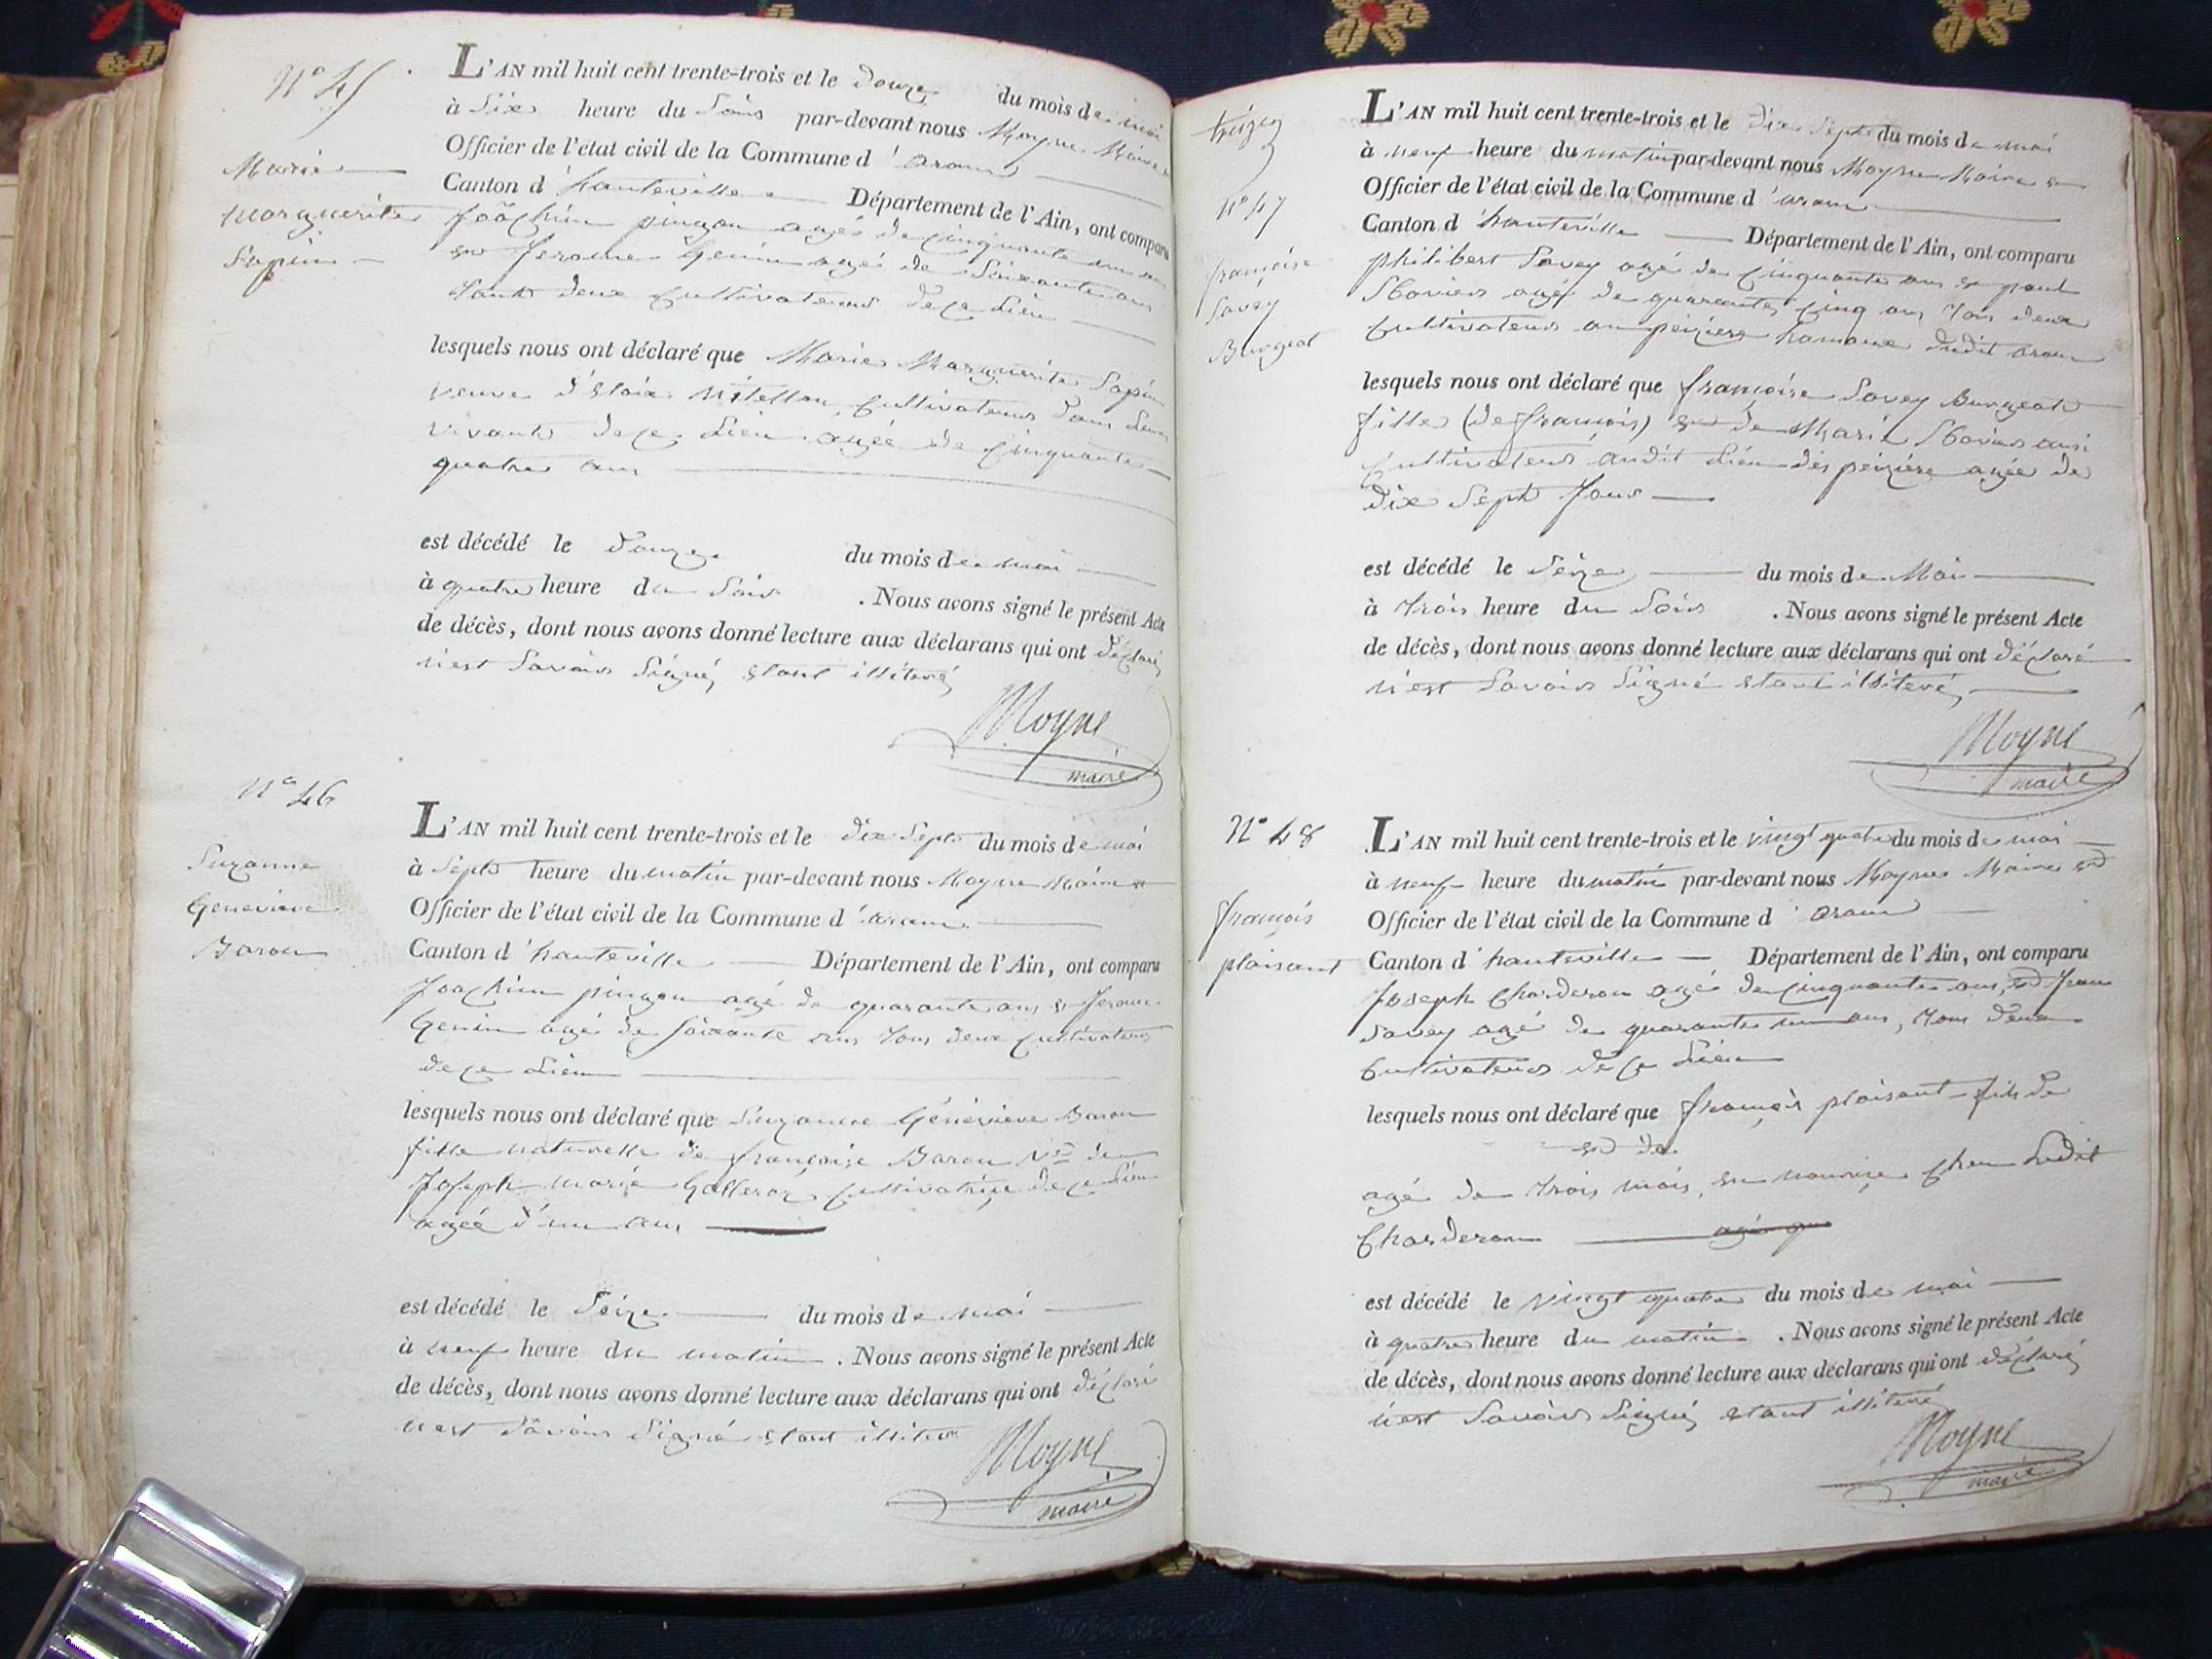 N° 45
Marie
Marguerite
Sapin
L'AN mil huit cent trente-trois et le douze du mois de mai
à six heure du soir par-devant nous Moyne Maire
Officier de l'état civil de la Commune d'aranc
Canton d'hauteville Département de l'Ain, ont comparu
Joachim pingon agé de cinquante un ans
et Jerome Genin agé de soixante ans
tout deux cultivateurs de ce Lieu
lesquels nous ont déclaré que Marie Marguerite Sapin
veuve d'Eloie cultivateurs
vivant de ce Lieu agée de cinquante
quatre ans
est décédé le douze du mois de mai
à quatre heure du Soir . Nous avons signé le présent Acte
de décès, dont nous avons donné lecture aux déclarans qui ont déclaré
n'est Savoir Signé, etant illiteré
Moyne
maire
N° 46
Suzanne
Genevieve
Baron
L'AN mil huit cent trente-trois et le dix Sept du mois de mai
à Sept heure du matin par-devant nous Moyne Maire et
Officier de l'état civil de la Commune d'aranc
Canton d'hauteville Département de l'Ain, ont comparu
Joachim pingon agé de quarante ans et Jerome
Genin agé de soixante ans tous deux cultivateurs
de ce Lieu
lesquels nous ont déclaré que Suzanne Généviève Baron
fille naturelle de françoise Baron Ve de
Joseph Marie cultivatrice de ce Lieu
agée d'un ans
est décédé le Seize du mois de mai
à neuf heure du matin . Nous avons signé le présent Acte
de décès, dont nous avons donné lecture aux déclarans qui ont déclaré
n'est Savoir Signé etant illiteré
Moyne
maire
treize
N° 47
françoise
Savey
Burgeat
L'AN mil huit cent trente-trois et le dix Sept du mois de mai
à neuf heure du matin par-devant nous Moyne Maire et
Officier de l'état civil de la Commune d'aranc
Canton d'hauteville Département de l'Ain, ont comparu
philibert Savey agé de cinquante ans et paul
agé de quarante cinq ans tous deux
cultivateurs hameau dudit aranc
lesquels nous ont déclaré que françoise Savey Burgeat
fille (de françois) et de Marie ausi
cultivateurs audit Lieu des agée de
dix Sept Jour
est décédé le Seize du mois de Mai
à trois heure du Soir . Nous avons signé le présent Acte
de décès, dont nous avons donné lecture aux déclarans qui ont déclaré
n'est Savoir Signé etant illiteré,
Moyne
maire
N° 48
françois
plaisant
L'AN mil huit cent trente-trois et le vingt quatre du mois de mai
à neuf heure du matin par-devant nous Moyne Maire et
Officier de l'état civil de la Commune d'aranc
Canton d'hauteville Département de l'Ain, ont comparu
Joseph Charderon agé de cinquante ans, et Jean
Savey agé de quarante un ans, tous deux
cultivateurs de ce Lieu
lesquels nous ont déclaré que françois plaisant fils de
et de
agé de trois mois, en nourrice chez Ledit
Charderon
est décédé le vingt quatre du mois de mai
à quatre heure du matin . Nous avons signé le présent Acte
de décès, dont nous avons donné lecture aux déclarans qui ont déclaré
n'est Savoir Signé, etant illiteré
Moyne
maire